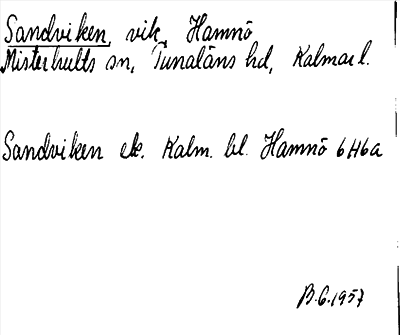 Sandviken, vik, Hamnö
Misterhults sn, Tunaläns hd, Kalmar l.
Sandviken ek. Kalm. bl. Hamnö 6H6a
B.G.1957